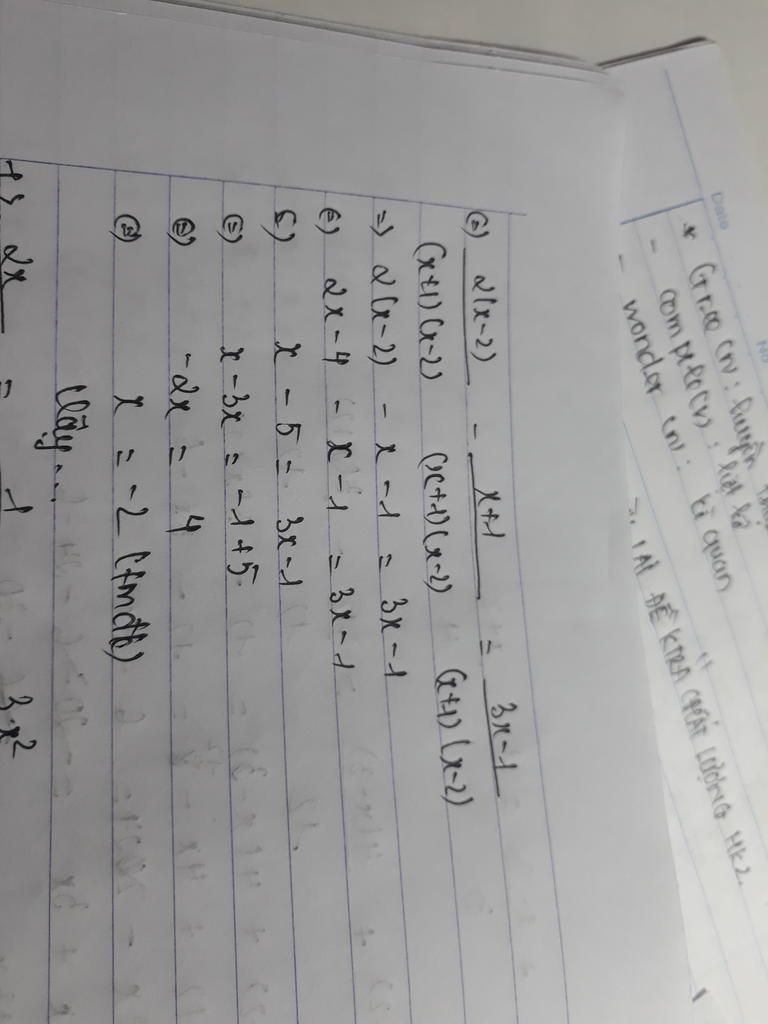 ⇔ 2(x-2)/(x+1)(x-2) - x+1/(x+1)(x-2) = 3x-1/(x+1)(x-2)
=> 2(x-2) - x - 1 = 3x - 1
⇔ 2x - 4 - x - 1 = 3x - 1
⇔ x - 5 = 3x - 1
⇔ x - 3x = -1 + 5
⇔ -2x = 4
⇔ x = -2 (tmđk)
Vậy...
2x = 1 3x²
Date
No
* Gree (n):
- compete (v): kê
- wonder (n): kì quan
LẠI ĐỀ KTRA CHẤT LƯỢNG HK2.